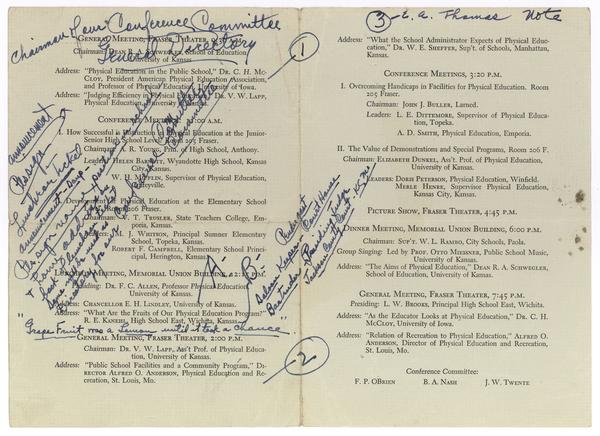 Chairman Love Conference Committee
General Directory
GENERAL MEETING, FRASER THEATER,
Chairman: DEAN R. A. SCHWEGLER, School of Education,
University of Kansas.
Address: "Physical Education in the Public School," DR. C. H. MC-
CLOY, President American Physical Education Association,
and Professor of Physical Education, University of Iowa.
Address: "Judging Efficiency in Physical Education," DR. V. W. LAPP,
Physical Education, University of Kansas.
CONFERENCE MEETINGS, A.M.
I. How Successful is Instruction in Physical Education at the Junior-
Senior High School Level, Room 205 Fraser.
Chairman: J. R. YOUNG, Prin. of High School, Anthony.
Leaders: HELEN BARNETT, Wyandotte High School, Kansas
City, Kansas.
W. H. MUFFLIN, Supervisor of Physical Education,
Coffeyville.
II. Development of Physical Education at the Elementary School
Level, Room 206 Fraser.
Chairman: V. T. TRUSLER, State Teachers College, Em-
poria, Kansas.
Leaders: M. J. WHITSON, Principal Sumner Elementary
School, Topeka, Kansas.
ROBERT F. CAMPBELL, Elementary School Princi-
pal, Herington, Kansas.
LUNCHEON MEETING, MEMORIAL UNION BUILDING, 12:15 P.M.
Presiding: DR. F. C. ALLEN, Professor Physical Education
University of Kansas.
Address: CHANCELLOR E. H. LINDLEY, University of Kansas.
Address: "What Are the Fruits of Our Physical Education Program?"
R. E. KANEHL, High School East, Wichita, Kansas.
Grape Fruit was a Lemon until it took a Chance
GENERAL MEETING, FRASER THEATER, 2:00 P.M.
Chairman: DR. V. W. LAPP, Ass't Prof. of Physical Educa-
tion, University of Kansas.
Address: "Public School Facilities and a Community Program," DI-
RECTOR ALFRED O. ANDERSON, Physical Education and Re-
creation, St. Louis, Mo.
1
2
announcement
A B
3 - E. A. Thomas Note
Address: "What the School Administrator Expects of Physical Educa-
tion," DR. W. E. SHEFFER, Sup't. of Schools, Manhattan,
Kansas.
CONFERENCE MEETINGS, 3:20 P.M.
I. Overcoming Handicaps in Facilities for Physical Education. Room
205 Fraser.
Chairman: JOHN J. BULLER, Larned.
Leaders: L. E. DITTEMORE, Supervisor of Physical Education,
Topeka.
A. D. SMITH, Physical Education, Emporia.
II. The Value of Demonstrations and Special Programs, Room 206 F.
Chairman: ELIZABETH DUNKEL, Ass't. Prof. of Physical Education,
University of Kansas.
Leaders: DORIS PETERSON, Physical Education, Winfield.
MERLE HENRE, Supervisor Physical Education,
Kansas City, Kansas.
PICTURE SHOW, FRASER THEATER, 4:45 P.M.
DINNER MEETING, MEMORIAL UNION BUILDING, 6:00 P.M.
Chairman: SUP'T. W. L. RAMBO, City Schools, Paola.
Group Singing: Led by PROF. OTTO MIESSNER, Public School Music,
University of Kansas.
Address: "The Aims of Physical Education," DEAN R. A. SCHWEGLER,
School of Education, University of Kansas.
GENERAL MEETING, FRASER THEATER, 7:45 P.M.
Presiding: L. W. BROOKS, Principal High School East, Wichita.
Address: "As the Educator Looks at Physical Education," DR. C. H.
MCCLOY, University of Iowa.
Address: "Relation of Recreation to Physical Education," ALFRED O.
ANDERSON, Director of Physical Education and Recreation,
St. Louis, Mo.
Conference Committee:
F. P. OBRIEN B. A. NASH J. W. TWENTE